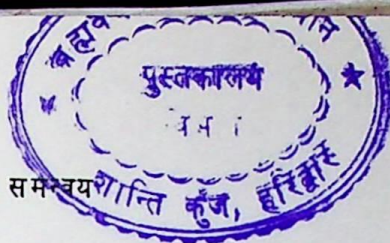 ब्रह्मव
पुस्तकालय
समन्वय
शान्ति कुंज, हरिद्वार